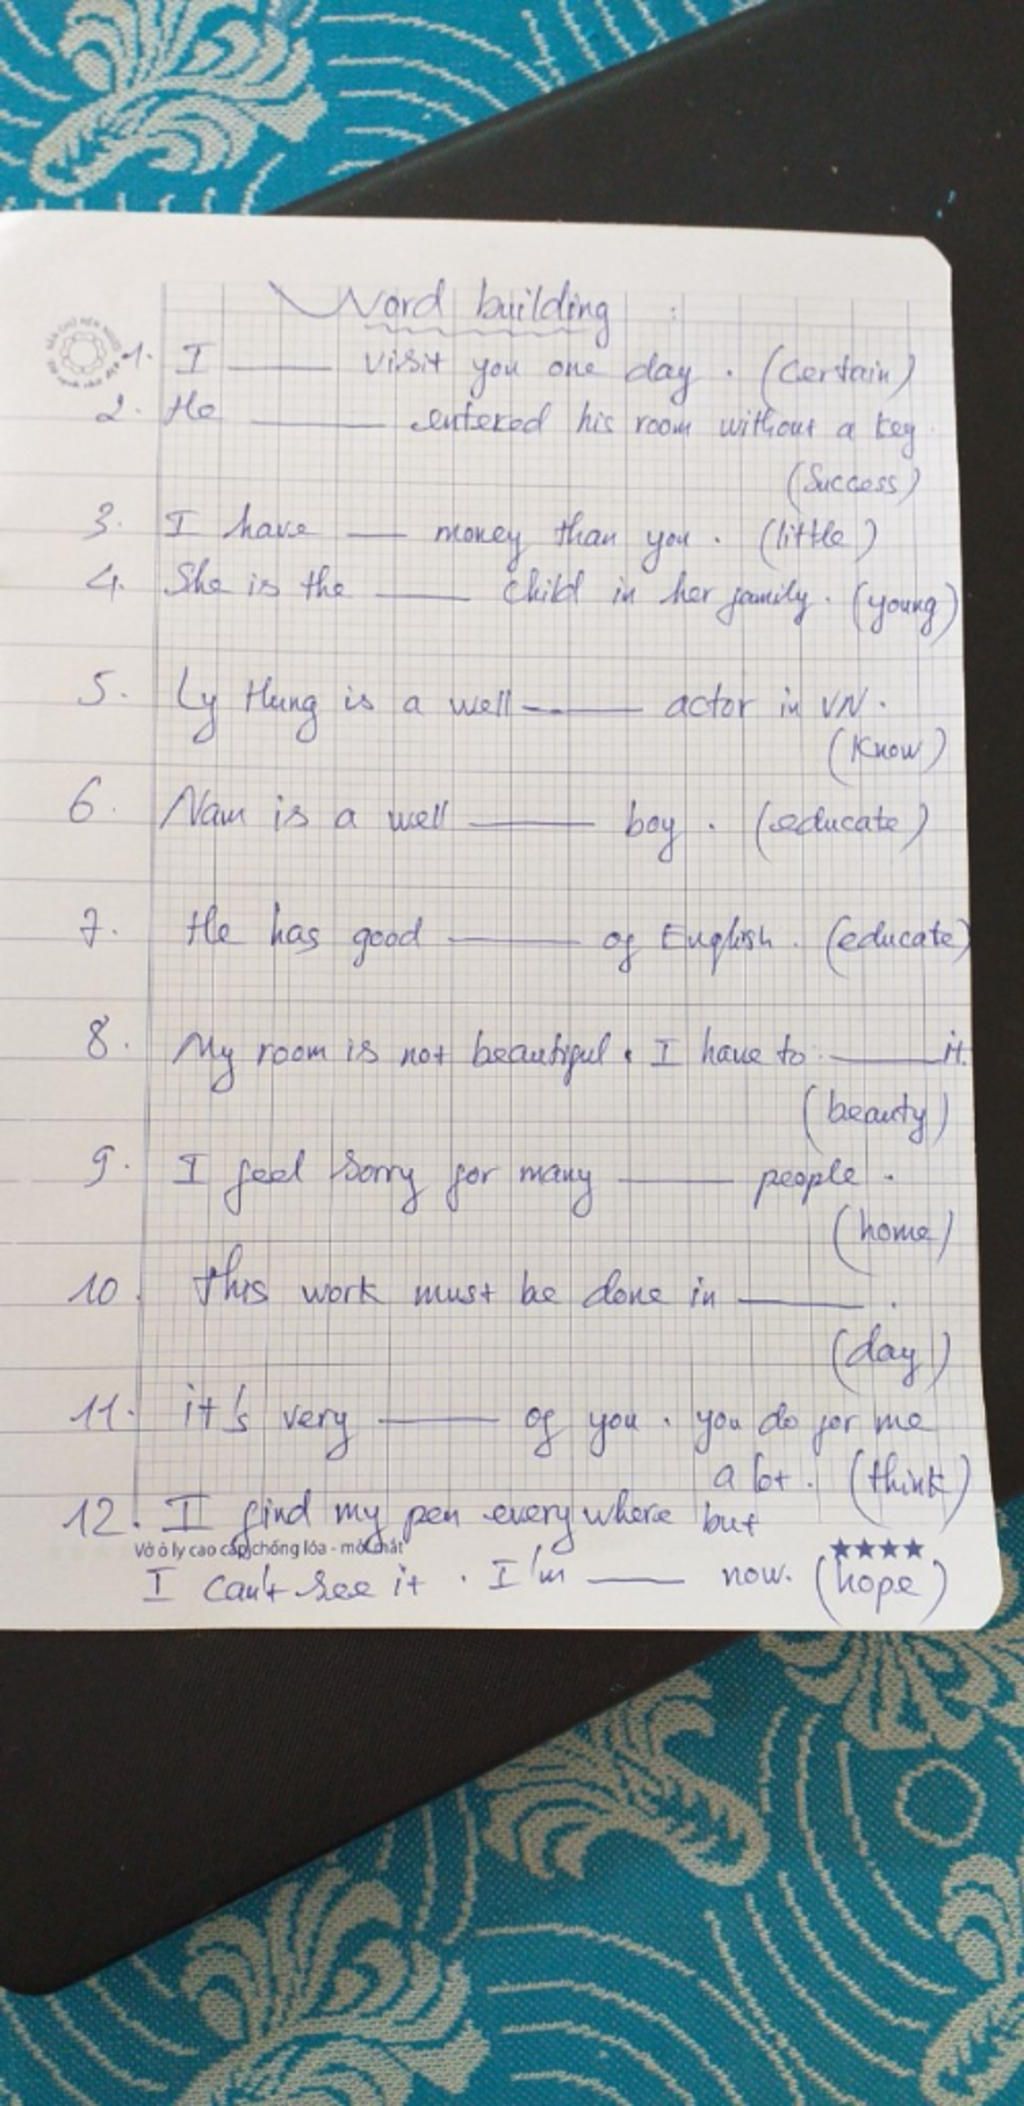 Word building :
1. I ____ visit you one day. (Certain)
2. He ____ entered his room without a key
(Success)
3. I have ____ money than you. (little)
4. She is the ____ child in her family. (young)
5. Ly Hung is a well-____ actor in VN.
(Know)
6. Nam is a well ____ boy. (educate)
7. He has good ____ of English. (educate)
8. My room is not beautiful. I have to ____ it.
(beauty)
9. I feel sorry for many ____ people.
(home)
10. this work must be done in ____.
(day)
11. it's very ____ of you. you do for me
a lot. (think)
12. I find my pen everywhere but
Vở ô ly cao cấp chống lóa - mỏi mắt
I can't see it. I'm ____ now. (hope)